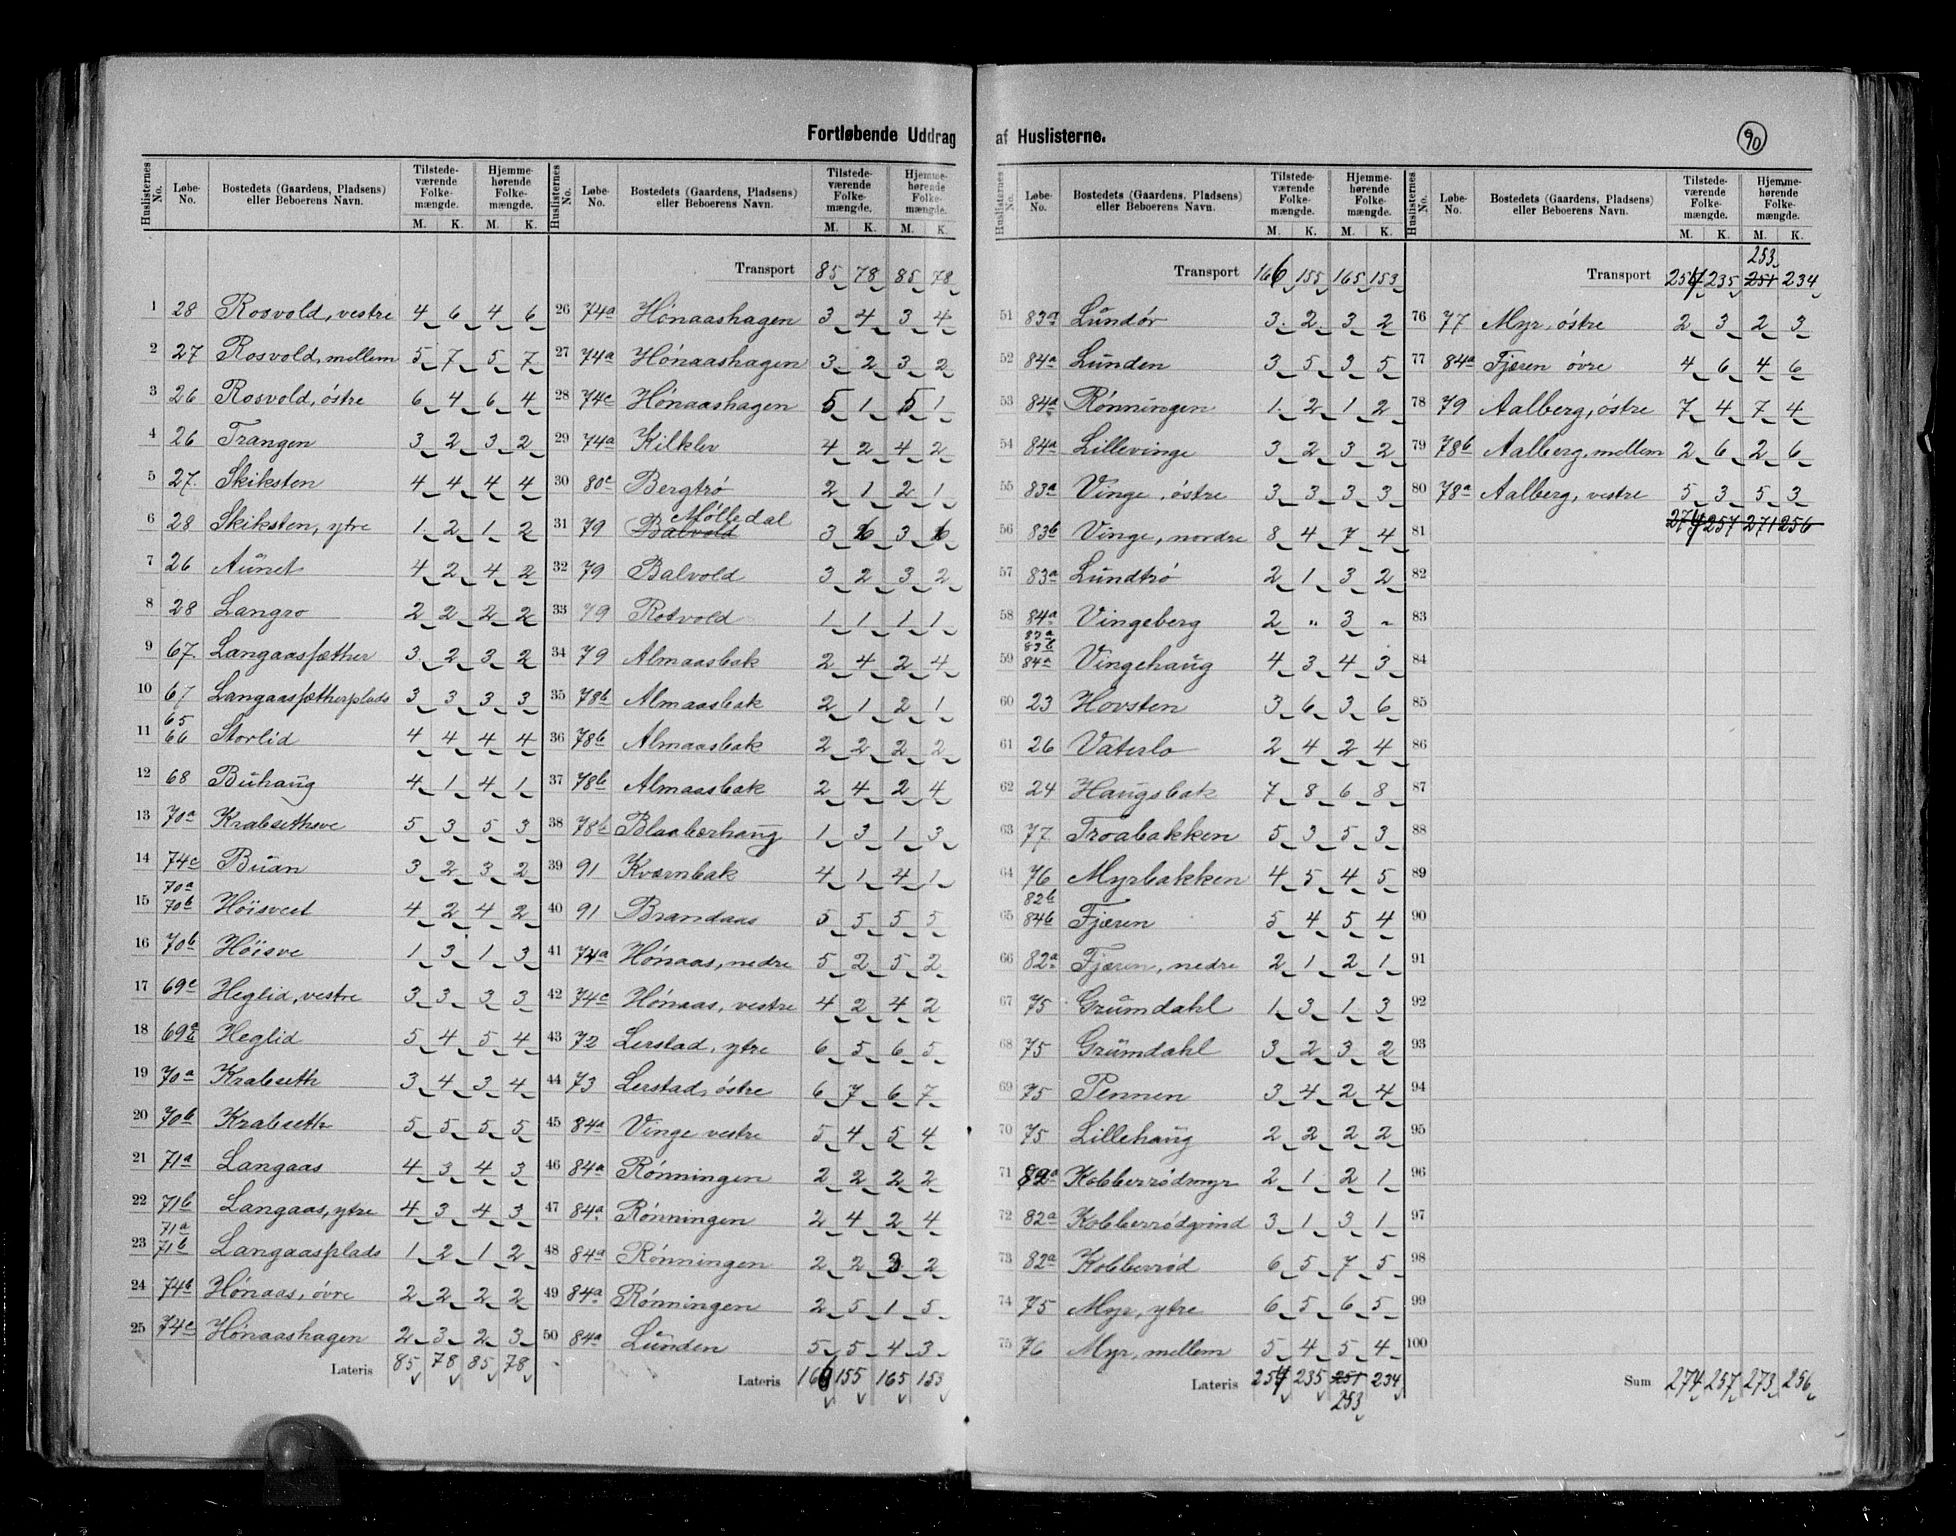 Fortløbende Uddrag af Huslisterne.
90
Huslisternes No. Løbe-No. Bostedets (Gaardens, Pladsens) eller Beboerens Navn. Tilstedeværende Folkemængde. M. K. Hjemmehørende Folkemængde. M. K.
1 28 Rosvold, vestre 4 6 4 6
2 27 Rosvold, mellem 5 7 5 7
3 26 Rosvold, östre 6 4 6 4
4 26 Trangen 3 2 3 2
5 27 Skiksten 4 4 4 4
6 28 Skiksten, ytre 1 2 1 2
7 26 Aunet 4 2 4 2
8 28 Langro 2 2 2 2
9 67 Langaassæther 3 2 3 2
10 67 Langaassætherplads 3 3 3 3
11 65 66 Storlid 4 4 4 4
12 68 Buhaug 4 1 4 1
13 70a Krabsethsve 5 3 5 3
14 74c Buan 3 2 3 2
15 70a 70b Höisveet 4 2 4 2
16 70b Höisve 1 3 1 3
17 69c Heglid, vestre 3 3 3 3
18 69a Heglid 5 4 5 4
19 70a Krabseth 3 4 3 4
20 70b Krabseth 5 5 5 5
21 71a Langaas 4 3 4 3
22 71b Langaas, ytre 4 3 4 3
23 71a 71b Langaasplads 1 2 1 2
24 74b Hönaas, övre 2 2 2 2
25 74c Hönaashagen 2 3 2 3
Lateris 85 78 85 78
Huslisternes No. Løbe-No. Bostedets (Gaardens, Pladsens) eller Beboerens Navn. Tilstedeværende Folkemængde. M. K. Hjemmehørende Folkemængde. M. K.
Transport 85 78 85 78
26 74a Hönaashagen 3 4 3 4
27 74a Hönaashagen 3 2 3 2
28 74c Hönaashagen 5 1 5 1
29 74a Kilklev 4 2 4 2
30 80c Bergtrö 2 1 2 1
31 79 Balvold Mölledal 3 6 3 6
32 79 Balvold 3 2 3 2
33 79 Rotvold 1 1 1 1
34 79 Almaasbak 2 4 2 4
35 78b Almaasbak 2 1 2 1
36 78b Almaasbak 2 2 2 2
37 78b Almaasbak 2 4 2 4
38 78b Blaabærhaug 1 3 1 3
39 91 Kværnbak 4 1 4 1
40 91 Brandaas 5 5 5 5
41 74a Hönaas, nedre 5 2 5 2
42 74c Hönaas, vestre 4 2 4 2
43 72 Lerstad, ytre 6 5 6 5
44 73 Lerstad, östre 6 7 6 7
45 84a Vinge vestre 5 4 5 4
46 84a Rönningen 2 2 2 2
47 84a Rönningen 2 4 2 4
48 84a Rönningen 2 2 3 2
49 84a Rönningen 2 5 1 5
50 84a Lunden 5 5 4 3
Lateris 166 155 165 153
Huslisternes No. Løbe-No. Bostedets (Gaardens, Pladsens) eller Beboerens Navn. Tilstedeværende Folkemængde. M. K. Hjemmehørende Folkemængde. M. K.
Transport 166 155 165 153
51 83a Lundör 3 2 3 2
52 84a Lunden 3 5 3 5
53 84a Rönningen 1 2 1 2
54 84a Lillevinge 3 2 3 2
55 83a Vinge, östre 3 3 3 3
56 83b Vinge, nordre 8 4 7 4
57 83a Lundtrö 2 1 3 2
58 84a Vingeberg 2 " 3 "
59 83a 83b 84a Vingehaug 4 3 4 3
60 23 Hovsten 3 6 3 6
61 26 Vaterlo 2 4 2 4
62 24 Haugsbak 7 8 6 8
63 77 Troabakken 5 3 5 3
64 76 Myrbakken 4 5 4 5
65 82b 84b Fjæren 5 4 5 4
66 82a Fjæren, nedre 2 1 2 1
67 75 Grumdahl 1 3 1 3
68 75 Grumdahl 3 2 3 2
69 75 Pennen 3 4 2 4
70 75 Lillehaug 2 2 2 2
71 82a Kobberrödmyr 2 1 2 1
72 82a Kobberrödgrind 3 1 3 1
73 82a Kobberröd 6 5 7 5
74 75 Myr, ytre 6 5 6 5
75 76 Myr, mellem 5 4 5 4
Lateris 254 235 251 234
253
Huslisternes No. Løbe-No. Bostedets (Gaardens, Pladsens) eller Beboerens Navn. Tilstedeværende Folkemængde. M. K. Hjemmehørende Folkemængde. M. K.
253
Transport 254 235 251 234
76 77 Myr, östre 2 3 2 3
77 84a Fjæren övre 4 6 4 6
78 79 Aalberg, östre 7 4 7 4
79 78b Aalberg, mellem 2 6 2 6
80 78a Aalberg, vestre 5 3 5 3
81 274 257 271 256
82
83
84
85
86
87
88
89
90
91
92
93
94
95
96
97
98
99
100
Sum 274 257 273 256